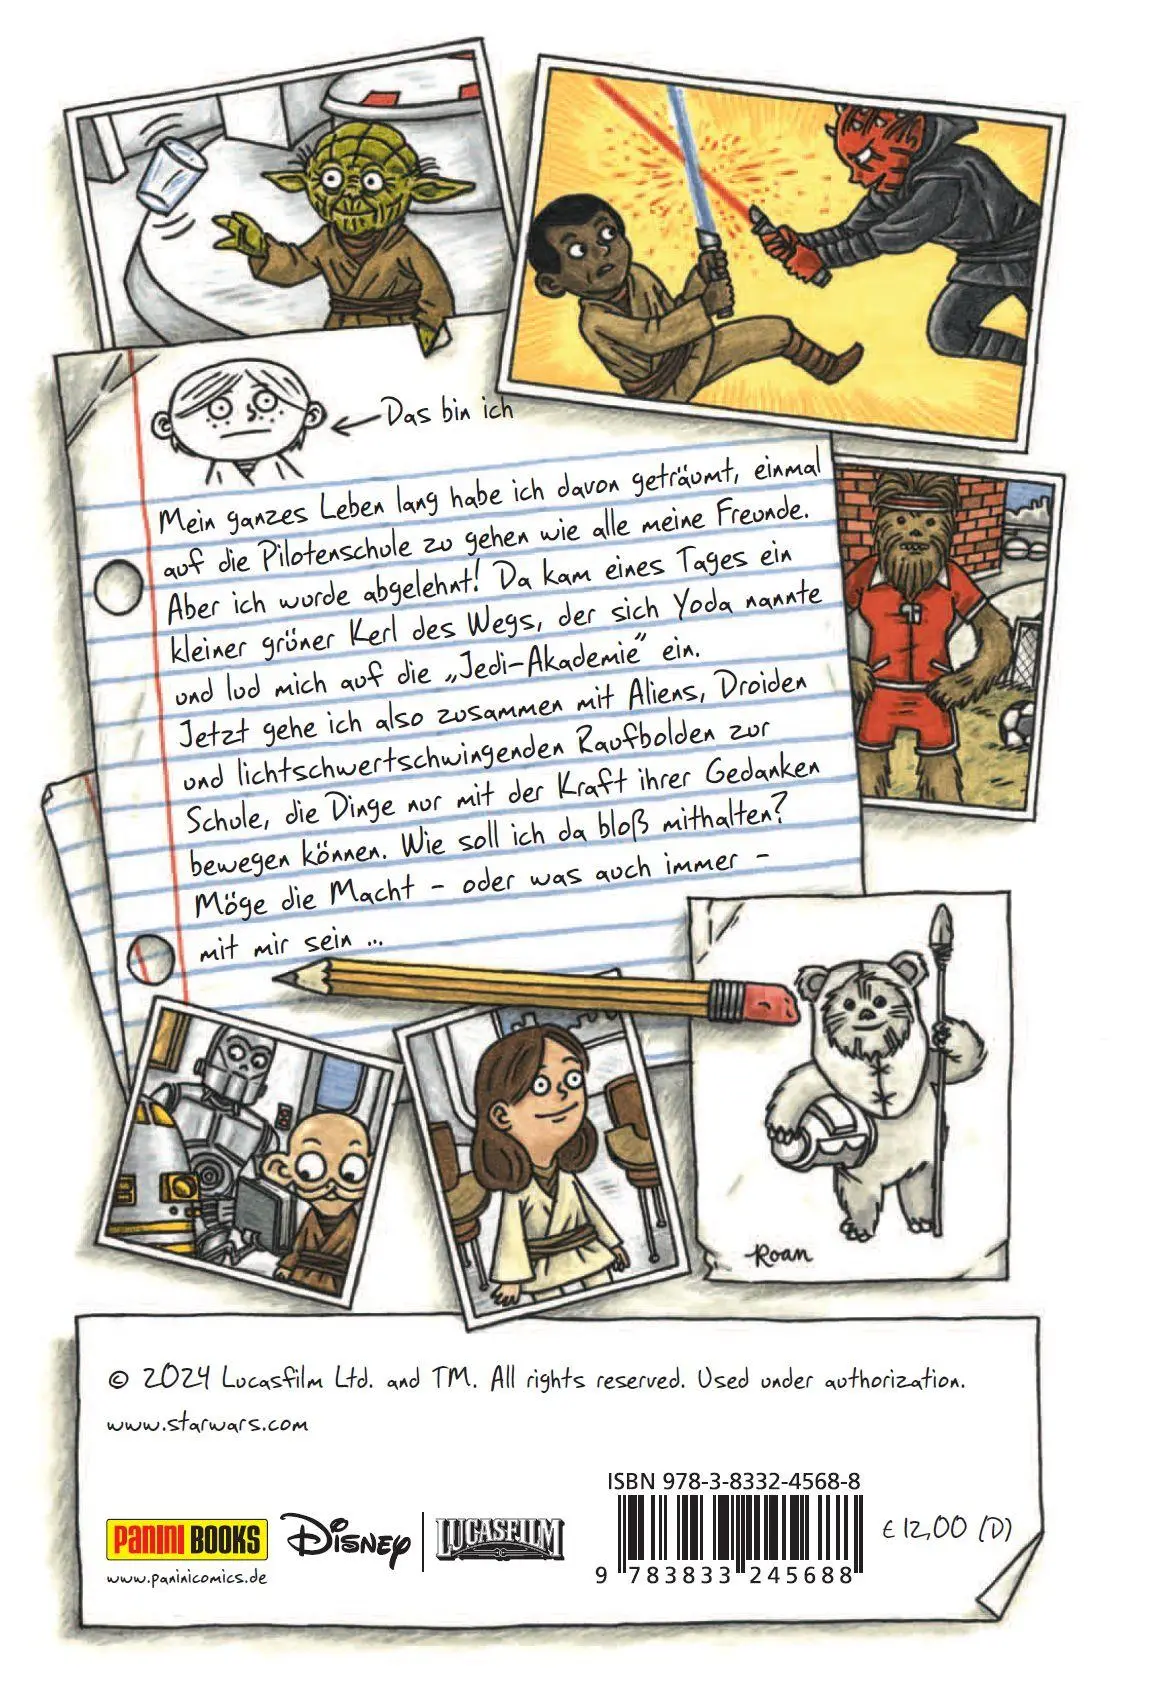 Das bin ich
Mein ganzes Leben lang habe ich davon geträumt, einmal
auf die Pilotenschule zu gehen wie alle meine Freunde.
Aber ich wurde abgelehnt! Da kam eines Tages ein
kleiner grüner Kerl des Wegs, der sich Yoda nannte
und lud mich auf die „Jedi-Akademie“ ein.
Jetzt gehe ich also zusammen mit Aliens, Droiden
und lichtschwertschwingenden Raufbolden zur
Schule, die Dinge nur mit der Kraft ihrer Gedanken
bewegen können. Wie soll ich da bloß mithalten?
Möge die Macht – oder was auch immer –
mit mir sein ...
Roan
© 2024 Lucasfilm Ltd. and TM. All rights reserved. Used under authorization.
www.starwars.com
ISBN 978-3-8332-4568-8
PANINI BOOKS
DISNEY
LUCASFILM
€ 12,00 (D)
www.paninicomics.de
9 783833 245688